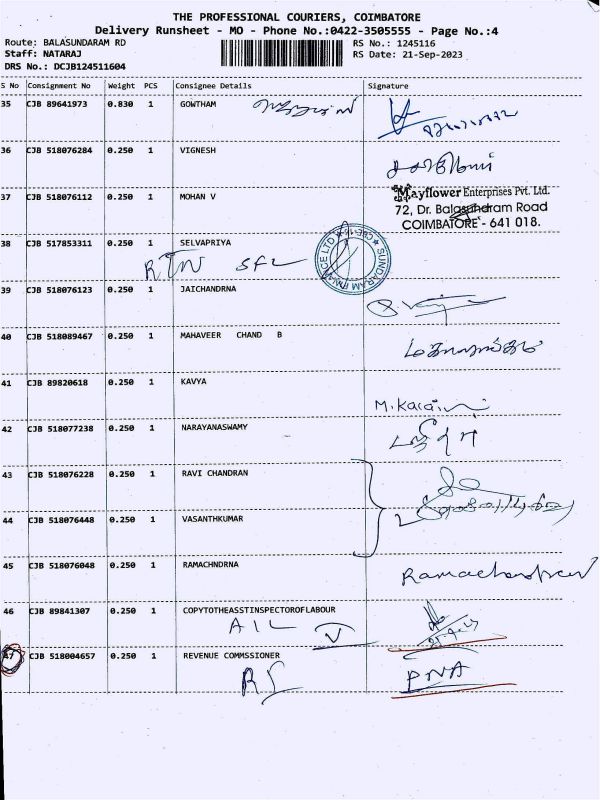 THE PROFESSIONAL COURIERS, COIMBATORE
Delivery Runsheet - MO - Phone No.:0422-3505555 - Page No.:4
Route: BALASUNDARAM RD
RS No.: 1245116
Staff: NATARAJ
RS Date: 21-Sep-2023
DRS No.: DCJB124511604
S No Consignment No Weight PCS Consignee Details Signature
35 CJB 89641973 0.830 1 GOWTHAM
36 CJB 518076284 0.250 1 VIGNESH
37 CJB 518076112 0.250 1 MOHAN V
Mayflower Enterprises Pvt. Ltd.
72, Dr. Balasundram Road
COIMBATORE - 641 018.
38 CJB 517853311 0.250 1 SELVAPRIYA
RTN SFL
SUNDARAM FINANCE LTD ★ CBE-18 ★
39 CJB 518076123 0.250 1 JAICHANDRNA
40 CJB 518089467 0.250 1 MAHAVEER CHAND B
41 CJB 89820618 0.250 1 KAVYA
42 CJB 518077238 0.250 1 NARAYANASWAMY
43 CJB 518076228 0.250 1 RAVI CHANDRAN
44 CJB 518076448 0.250 1 VASANTHKUMAR
2
45 CJB 518076048 0.250 1 RAMACHNDRNA
Ramachandran
46 CJB 89841307 0.250 1 COPYTOTHEASSTINSPECTOROFLABOUR
AIL
47 CJB 518004657 0.250 1 REVENUE COMMSSIONER
RS PNA